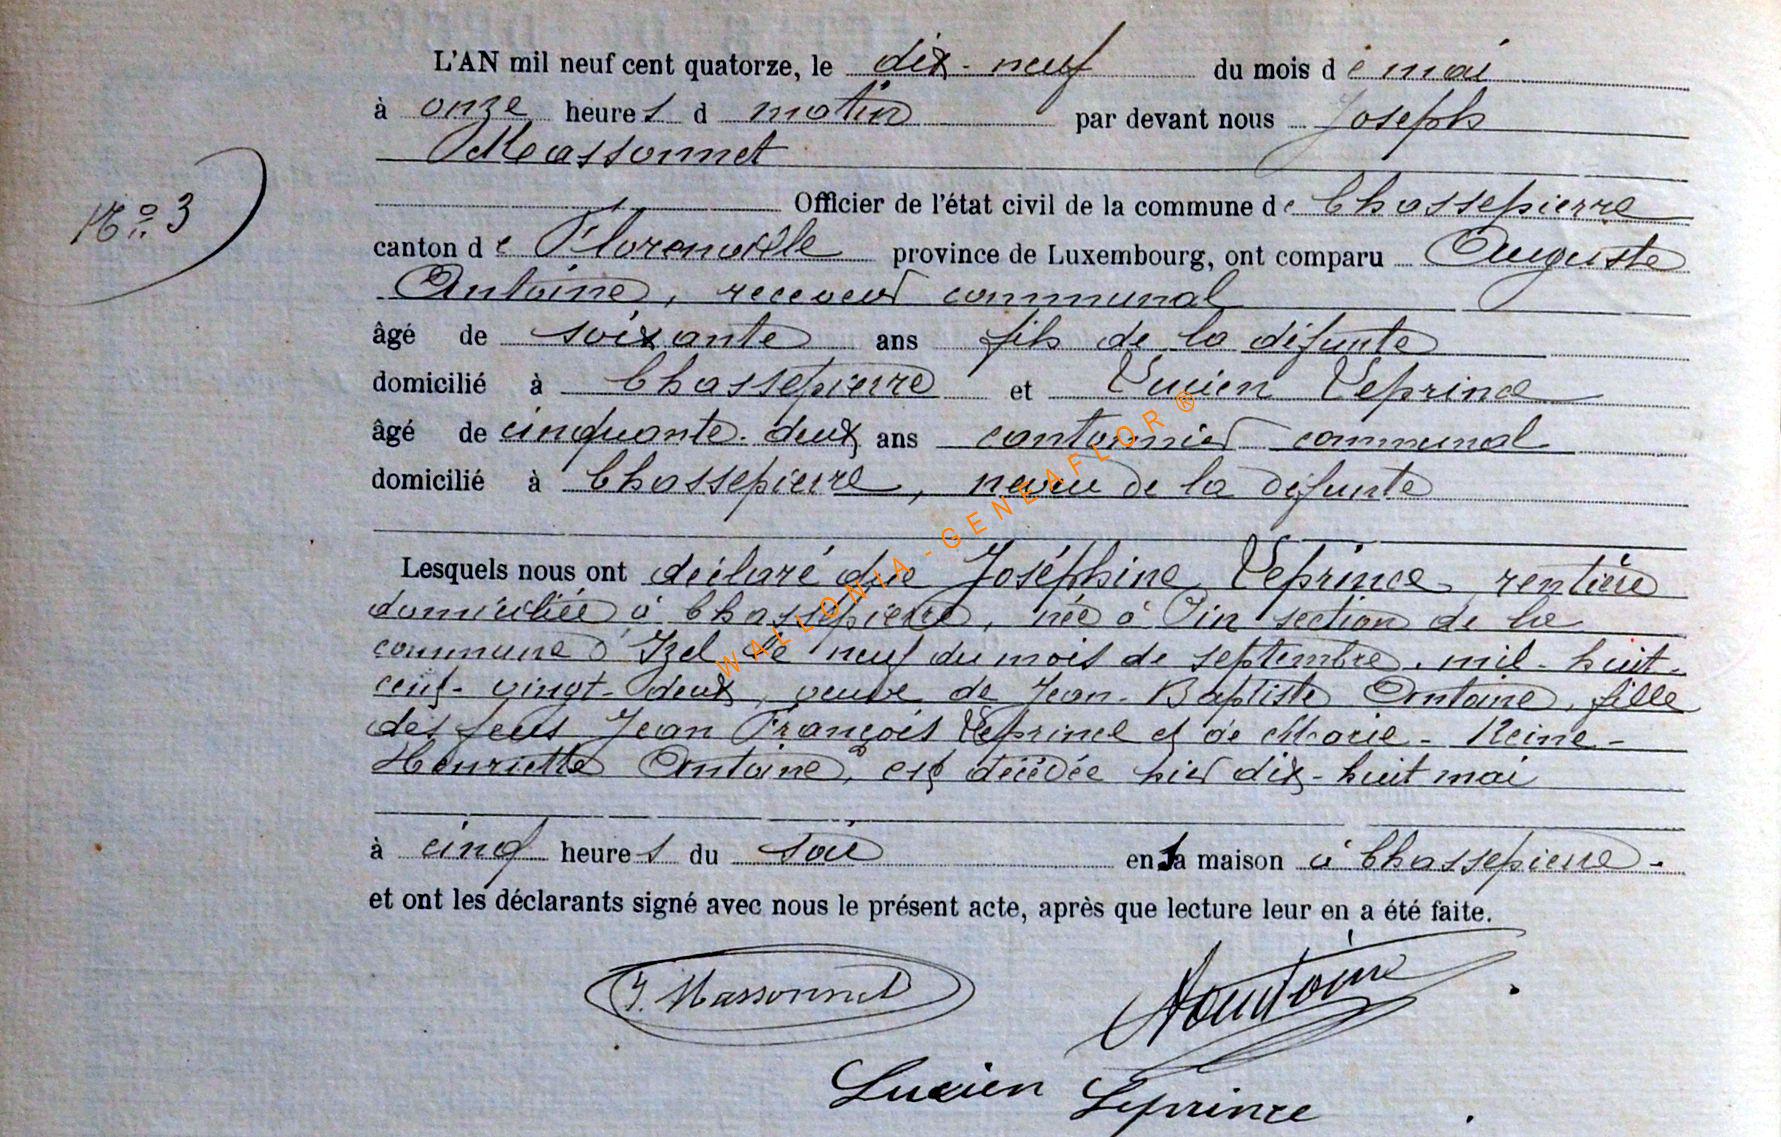 L'AN mil neuf cent quatorze, le dix-neuf du mois de mai
à onze heures d matin par devant nous Joseph
Massonnet
Nº 3
Officier de l'état civil de la commune de Chassepierre
canton de Florenville province de Luxembourg, ont comparu Auguste
Antoine, receveur communal
âgé de soixante ans fils de la défunte
domicilié à Chassepierre et Lucien Leprince
âgé de cinquante-deux ans cantonnier communal
domicilié à Chassepierre, neveu de la défunte
Lesquels nous ont déclaré que Joséphine Leprince rentière
domiciliée à Chassepierre, née à Pin section de la
commune d'Izel le neuf du mois de septembre mil-huit-
cent-vingt-deux, veuve de Jean-Baptiste Antoine, fille
des feus Jean François Leprince et de Marie-Reine-
Henriette Antoine, est décédée hier dix-huit mai
à cinq heures du soir en sa maison à Chassepierre.
et ont les déclarants signé avec nous le présent acte, après que lecture leur en a été faite.
J. Massonnet
AAntoine
Lucien Leprince
WALLONIA-GENEAFLOR ®